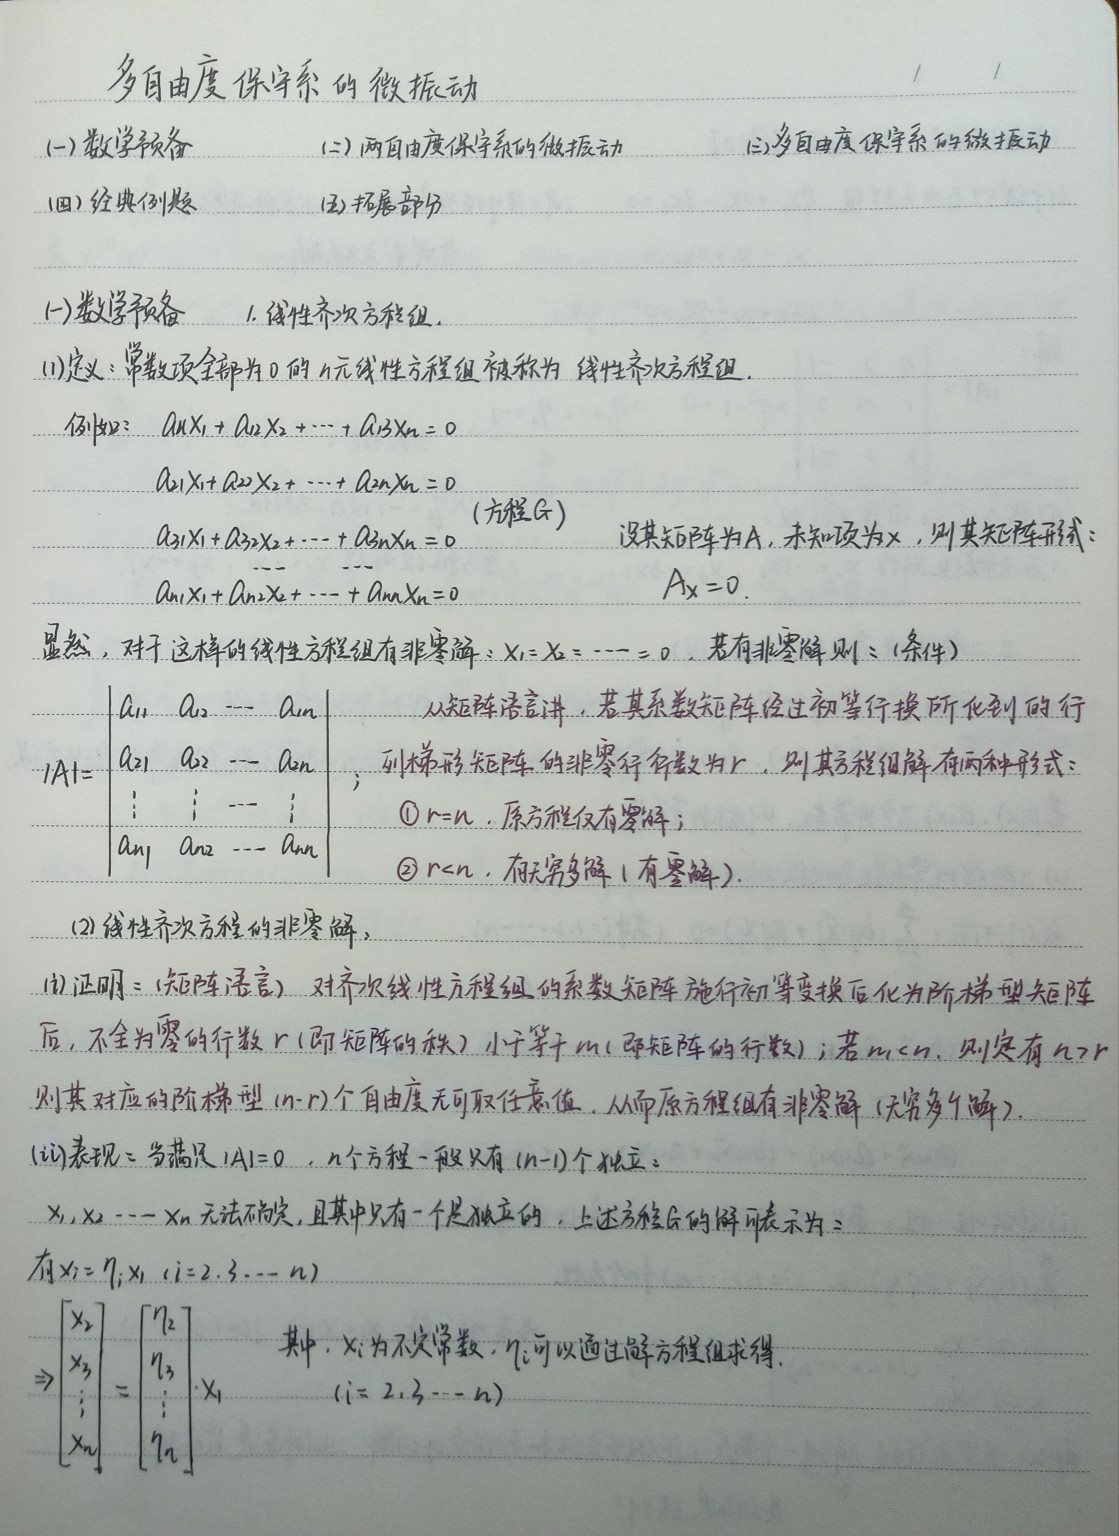 多自由度保守系的微振动
(一)数学预备 (二)两自由度保守系的微振动 (三)多自由度保守系的微振动
(四)经典例题 (五)拓展部分
(一)数学预备 1.线性齐次方程组.
(1)定义：常数项全部为0的n元线性方程组被称为 线性齐次方程组.
例如： a11x1 + a12x2 + ··· + a13xn = 0
a21x1 + a22x2 + ··· + a2nxn = 0
(方程G)
a31x1 + a32x2 + ··· + a3nxn = 0 设其矩阵为A, 未知项为x, 则其矩阵形式：
an1x1 + an2x2 + ··· + annxn = 0 Ax=0.
显然, 对于这样的线性方程组有非零解：x1 = x2 = ··· = 0. 若有非零解则：(条件)
|A| = | a11 a12 ··· a1n |
| a21 a22 ··· a2n |
| ⋮ ⋮ ··· ⋮ |
| an1 an2 ··· ann | ;
从矩阵语言讲, 若其系数矩阵经过初等行换所化到的行
列梯形矩阵的非零行行数为r, 则其方程组解有两种形式：
① r=n, 原方程仅有零解;
② r<n, 有无穷多解(有零解).
(2)线性齐次方程的非零解,
(i)证明：(矩阵语言) 对齐次线性方程组的系数矩阵施行初等变换后化为阶梯型矩阵
后, 不全为零的行数r(即矩阵的秩)小于等于m(即矩阵的行数); 若m<n, 则定有n>r
则其对应的阶梯型(n-r)个自由度无可取任意值, 从而原方程组有非零解(无穷多个解).
(ii)表现：当满足|A|=0, n个方程一般只有(n-1)个独立：
x1, x2 ··· xn 无法确定, 且其中只有一个是独立的, 上述方程G的解可表示为：
有xi = ηix1 (i=2.3.···n)
⇒ [x2 x3 ⋮ xn] = [η2 η3 ⋮ ηn] · x1
其中, xi为不定常数, ηi可以通过解方程组求得.
(i = 2.3···n)